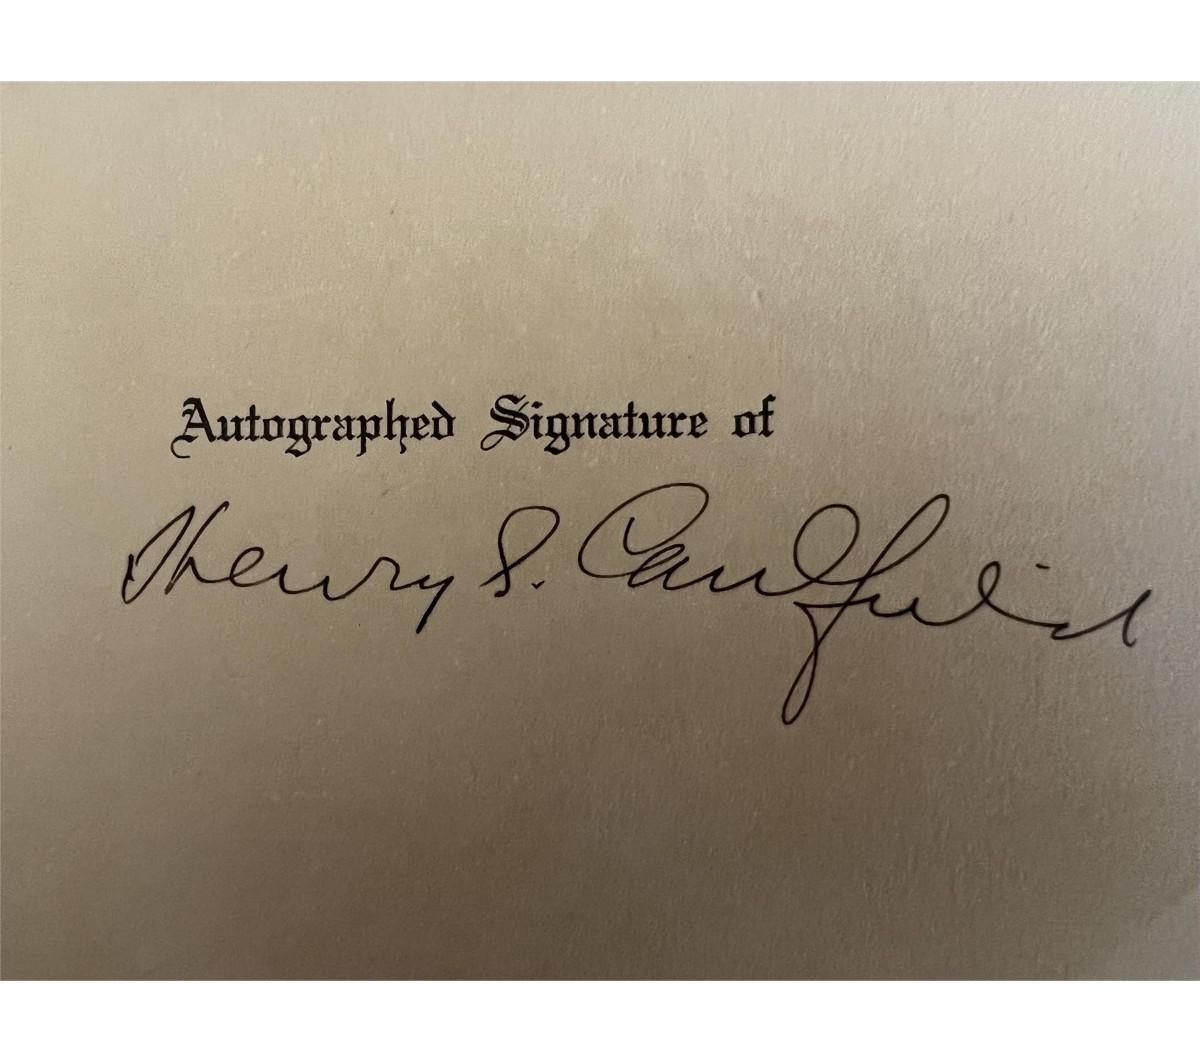 Autographed Signature of
Henry S. Caulfield